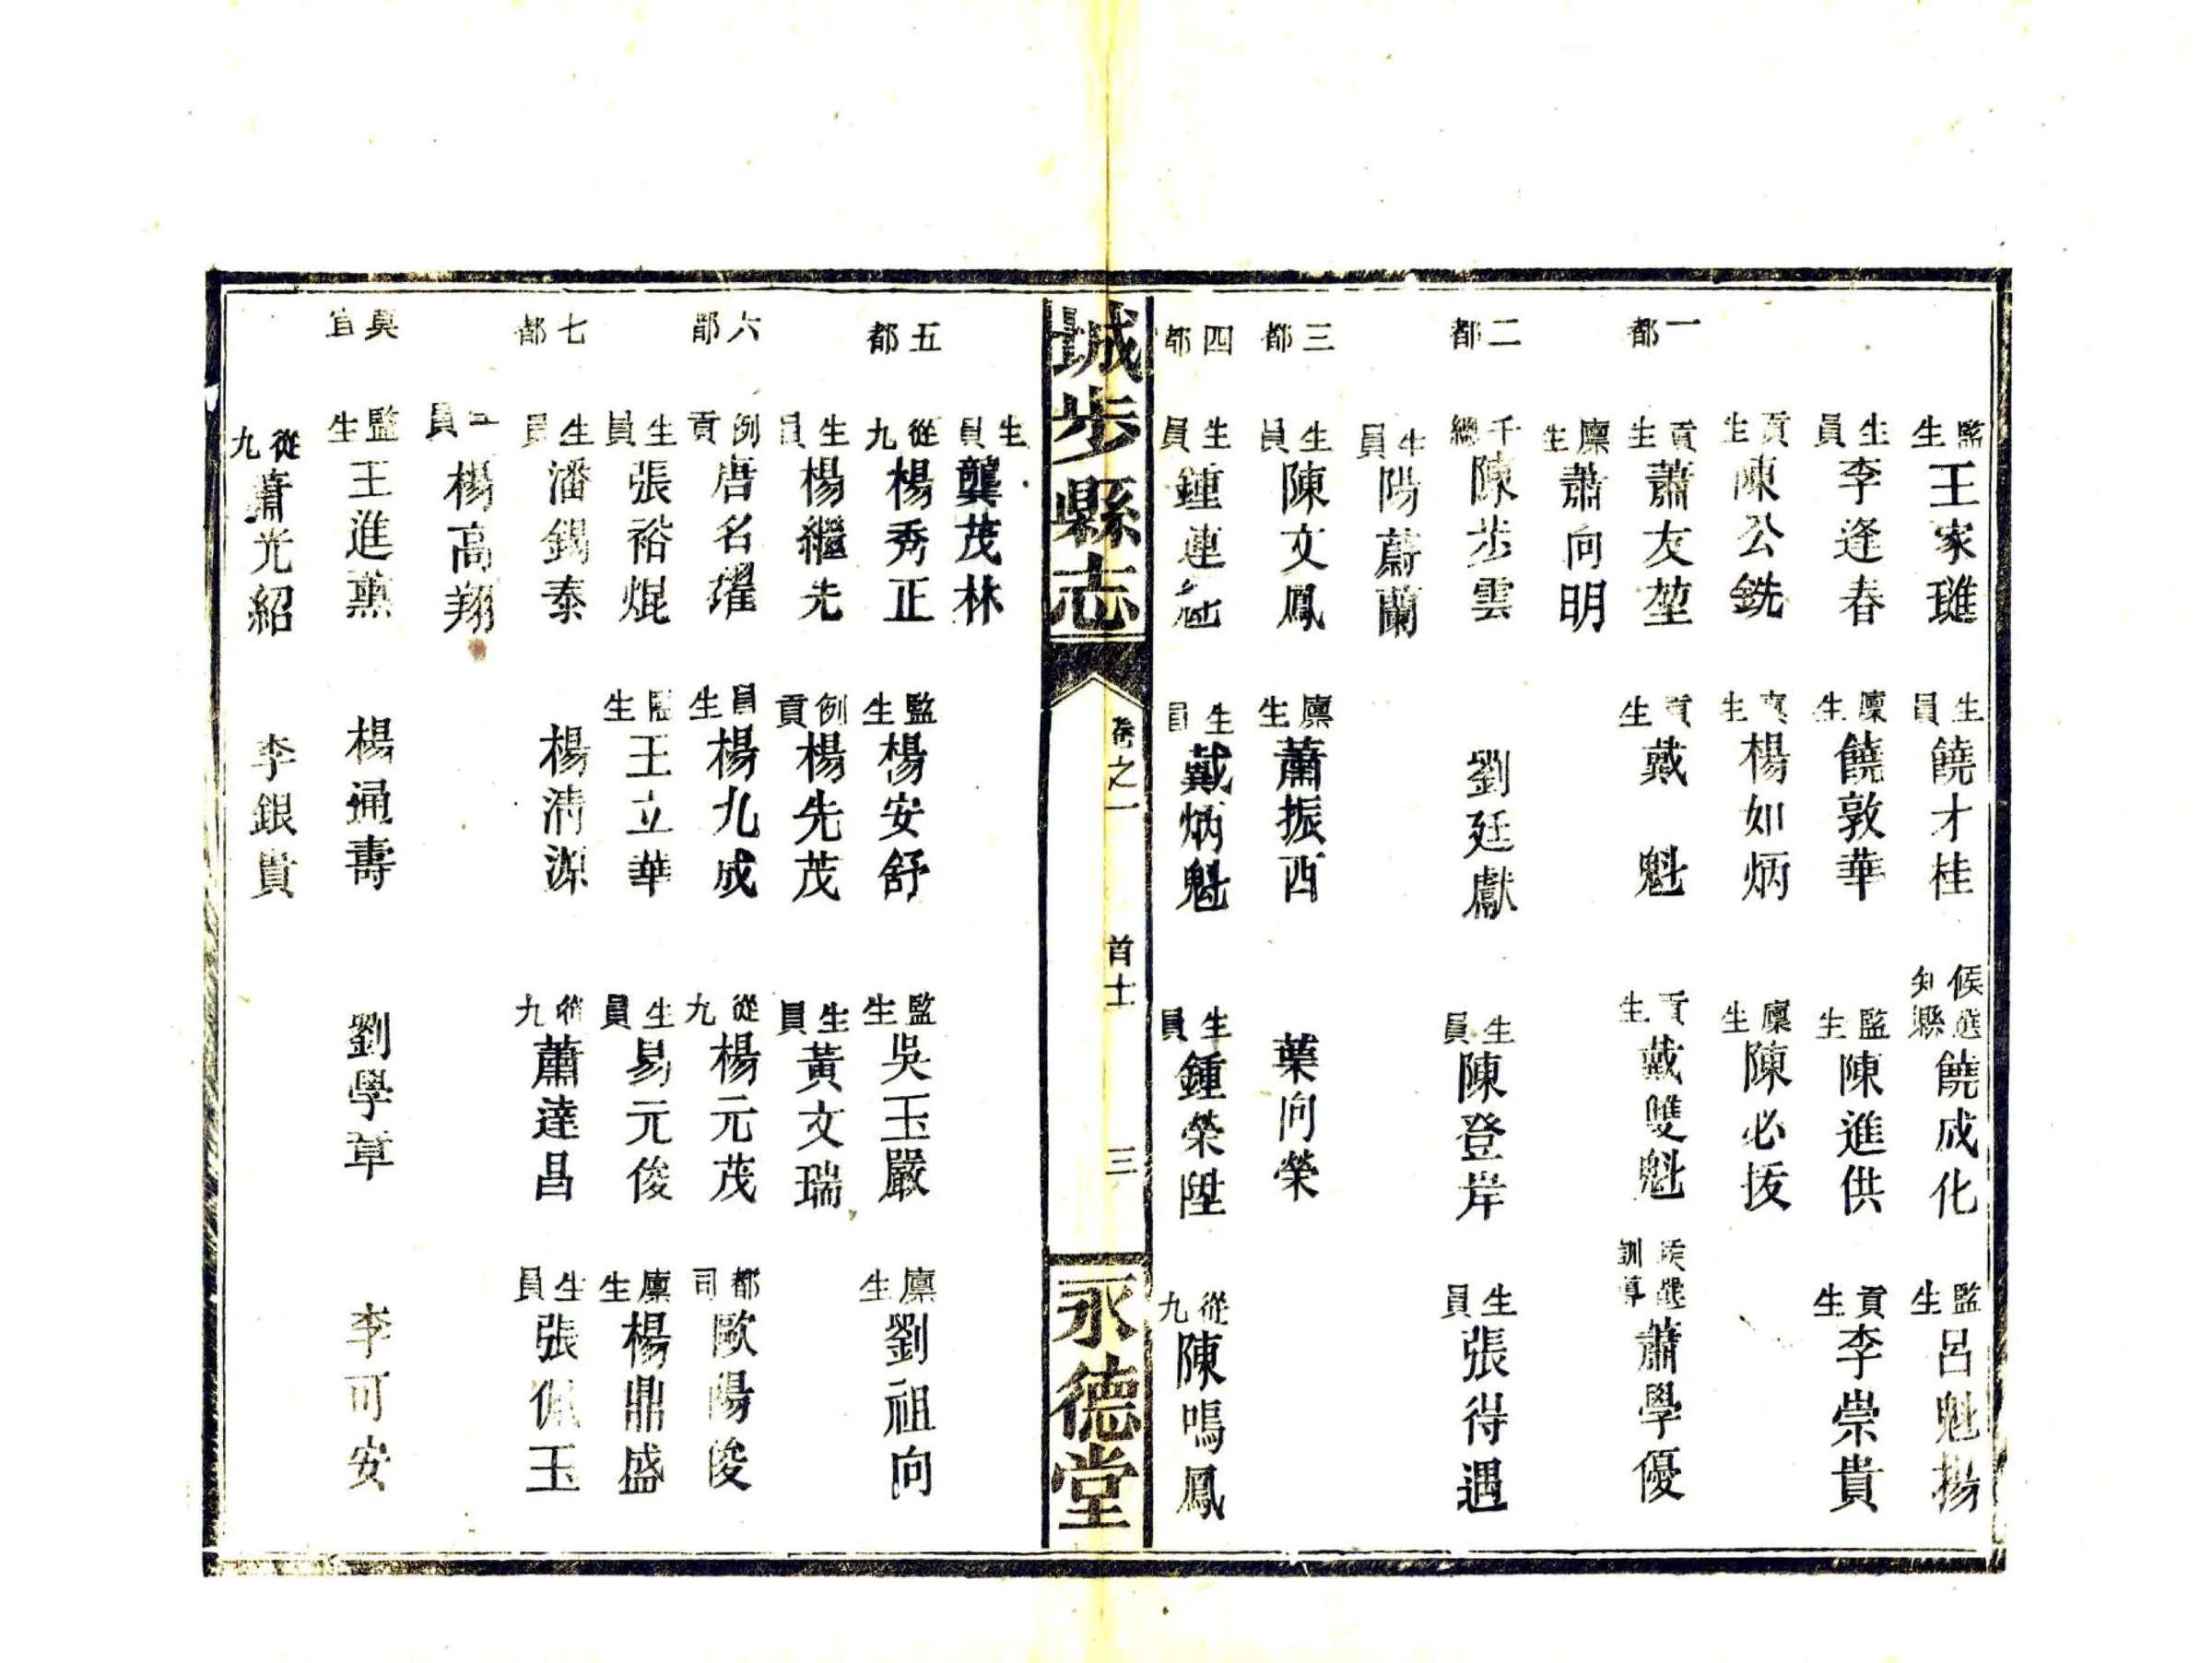 監生王家璡 生員饒才桂 候選知縣饒成化 監生呂魁揚
生員李逢春 廩生饒敦華 監生陳進供 貢生李崇貴
貢生陳公銑 廩生楊如炳 廩生陳必拔
一都 貢生蕭友堃 貢生戴魁 貢生戴雙魁 候選訓導蕭學優
廩生蕭向明
二都 千總陳步雲 劉廷獻 生員陳登岸 生員張得遇
生員陽蔚蘭
三都 生員陳文鳳 廩生蕭振西 葉向榮
四都 生員鍾連魁 生員戴炳魁 生員鍾榮陞 從九陳鳴鳳
城步縣志 卷之一 首士 三 永德堂
生員龔茂林
五都 從九楊秀正 監生楊安舒 監生吳玉嚴 廩生劉祖向
生員楊繼先 例貢楊先茂 生員黃文瑞
六都 例貢唐名耀 生員楊九成 從九楊元茂 都司歐陽俊
生員張裕焜 監生王立華 生員易元俊 廩生楊鼎盛
七都 生員潘錫泰 楊清源 從九蕭達昌 生員張佩玉
生員楊高翔
監生王進熏 楊通壽 劉學章 李可安
從九蕭光紹 李銀貴